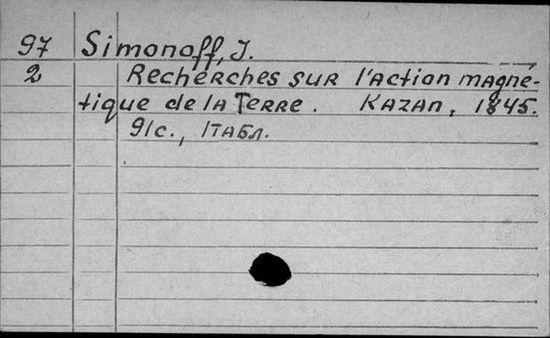 97 Simonoff, J.
2 Recherches sur l'action magné-
tique de la Terre. Kazan, 1845.
91c., 1табл.